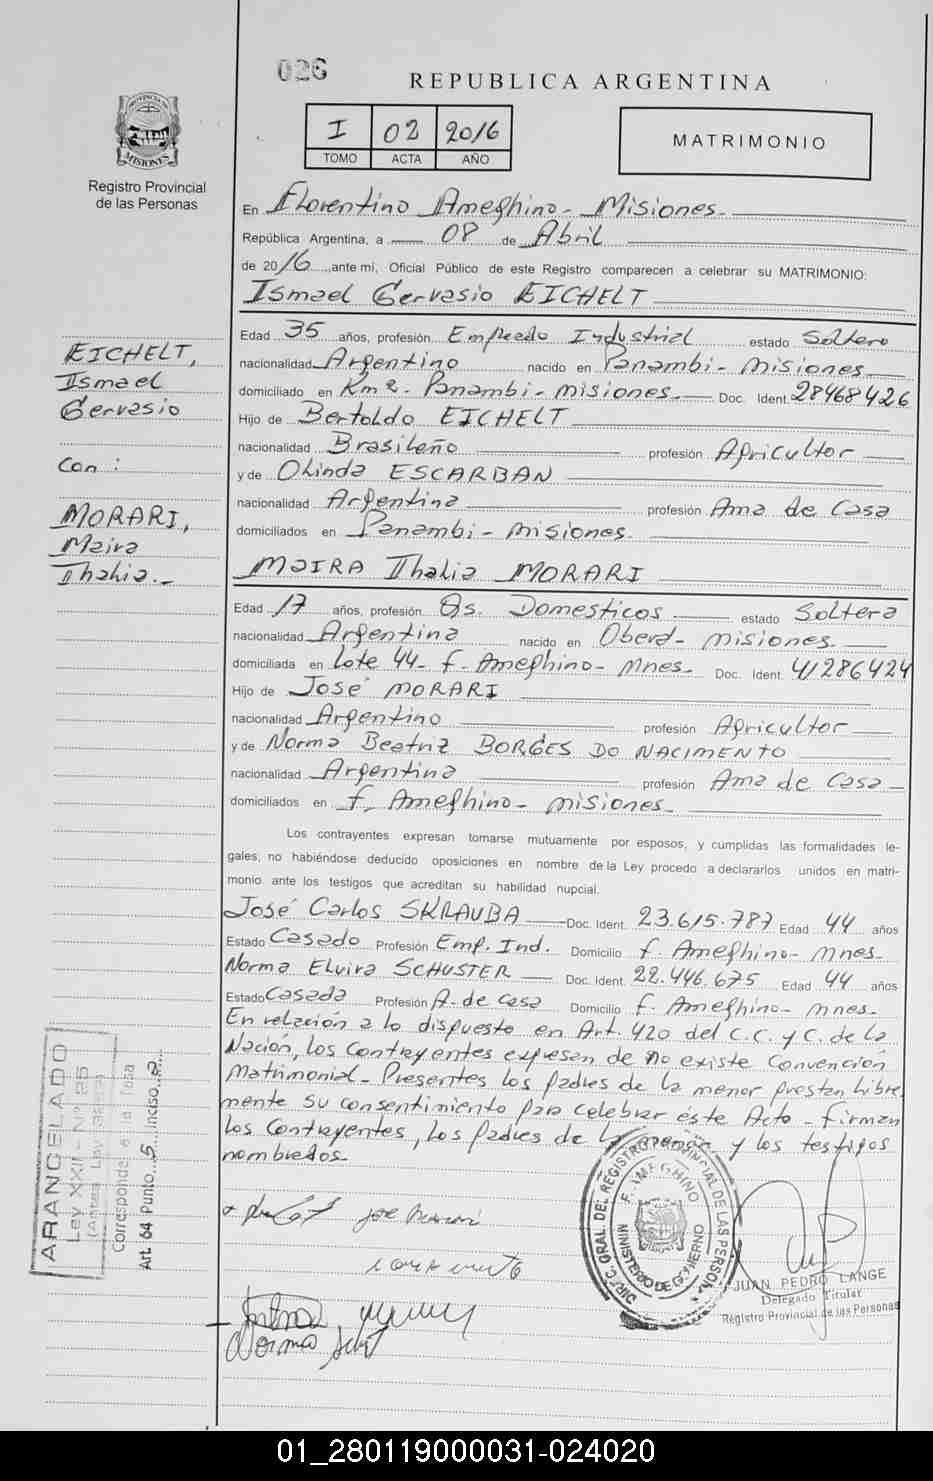 026
REPUBLICA ARGENTINA
I 02 2016
TOMO ACTA AÑO
MATRIMONIO
PROVINCIA DE MISIONES
Registro Provincial
de las Personas
En Florentino Ameghino - Misiones.
República Argentina, a 08 de Abril
de 2016, ante mí, Oficial Público de este Registro comparecen a celebrar su MATRIMONIO:
Ismael Gervasio EICHELT
EICHELT,
Ismael
Gervasio
Con:
MORARI,
Maira
Thalia.-
Edad 35 años, profesión Empleado Industrial estado Soltero
nacionalidad Argentino nacido en Panambi - Misiones.
domiciliado en Km 2. Panambi - Misiones. Doc. Ident. 28468426
Hijo de Bertoldo EICHELT
nacionalidad Brasileño profesión Agricultor
y de Olinda ESCARBAN
nacionalidad Argentina profesión Ama de Casa
domiciliados en Panambi - Misiones.
MAIRA Thalia MORARI
Edad 17 años, profesión Qs. Domesticos estado Soltera
nacionalidad Argentina nacido en Oberá - Misiones.
domiciliada en Lote 44 - F. Ameghino - Mnes. Doc. Ident. 41286424
Hijo de José MORARI
nacionalidad Argentino profesión Agricultor
y de Norma Beatriz BORGES DO NACIMENTO
nacionalidad Argentina profesión Ama de Casa
domiciliados en F. Ameghino - Misiones.
Los contrayentes expresan tomarse mutuamente por esposos, y cumplidas las formalidades le-
gales, no habiéndose deducido oposiciones en nombre de la Ley procedo a declararlos unidos en matri-
monio ante los testigos que acreditan su habilidad nupcial.
José Carlos SKRAUBA Doc. Ident. 23.615.787 Edad 44 años
Estado Casado Profesión Emp. Ind. Domicilio F. Ameghino - Mnes.
Norma Elvira SCHUSTER Doc. Ident. 22.446.675 Edad 44 años
Estado Casada Profesión A. de Casa Domicilio F. Ameghino - Mnes.
En relación a lo dispuesto en Art. 420 del C.C. y C. de la
Nación, los Contrayentes expresan de no existe Convención
Matrimonial - Presentes los padres de la menor prestan libre
mente su consentimiento para celebrar éste Acto - Firman
los Contrayentes, los padres de la menor y los testigos
nombrados.
ARANCELADO
Ley XXII - Nº 25
Corresponde a la Tasa
Art. 64 Punto 5 Inciso a
DIREC. GRAL. DEL REGISTRO PROVINCIAL DE LAS PERSONAS
F. AMEGHINO
MINISTERIO DE GOBIERNO
JUAN PEDRO LANGE
Delegado Titular
Registro Provincial de las Personas
Norma
01_280119000031-024020